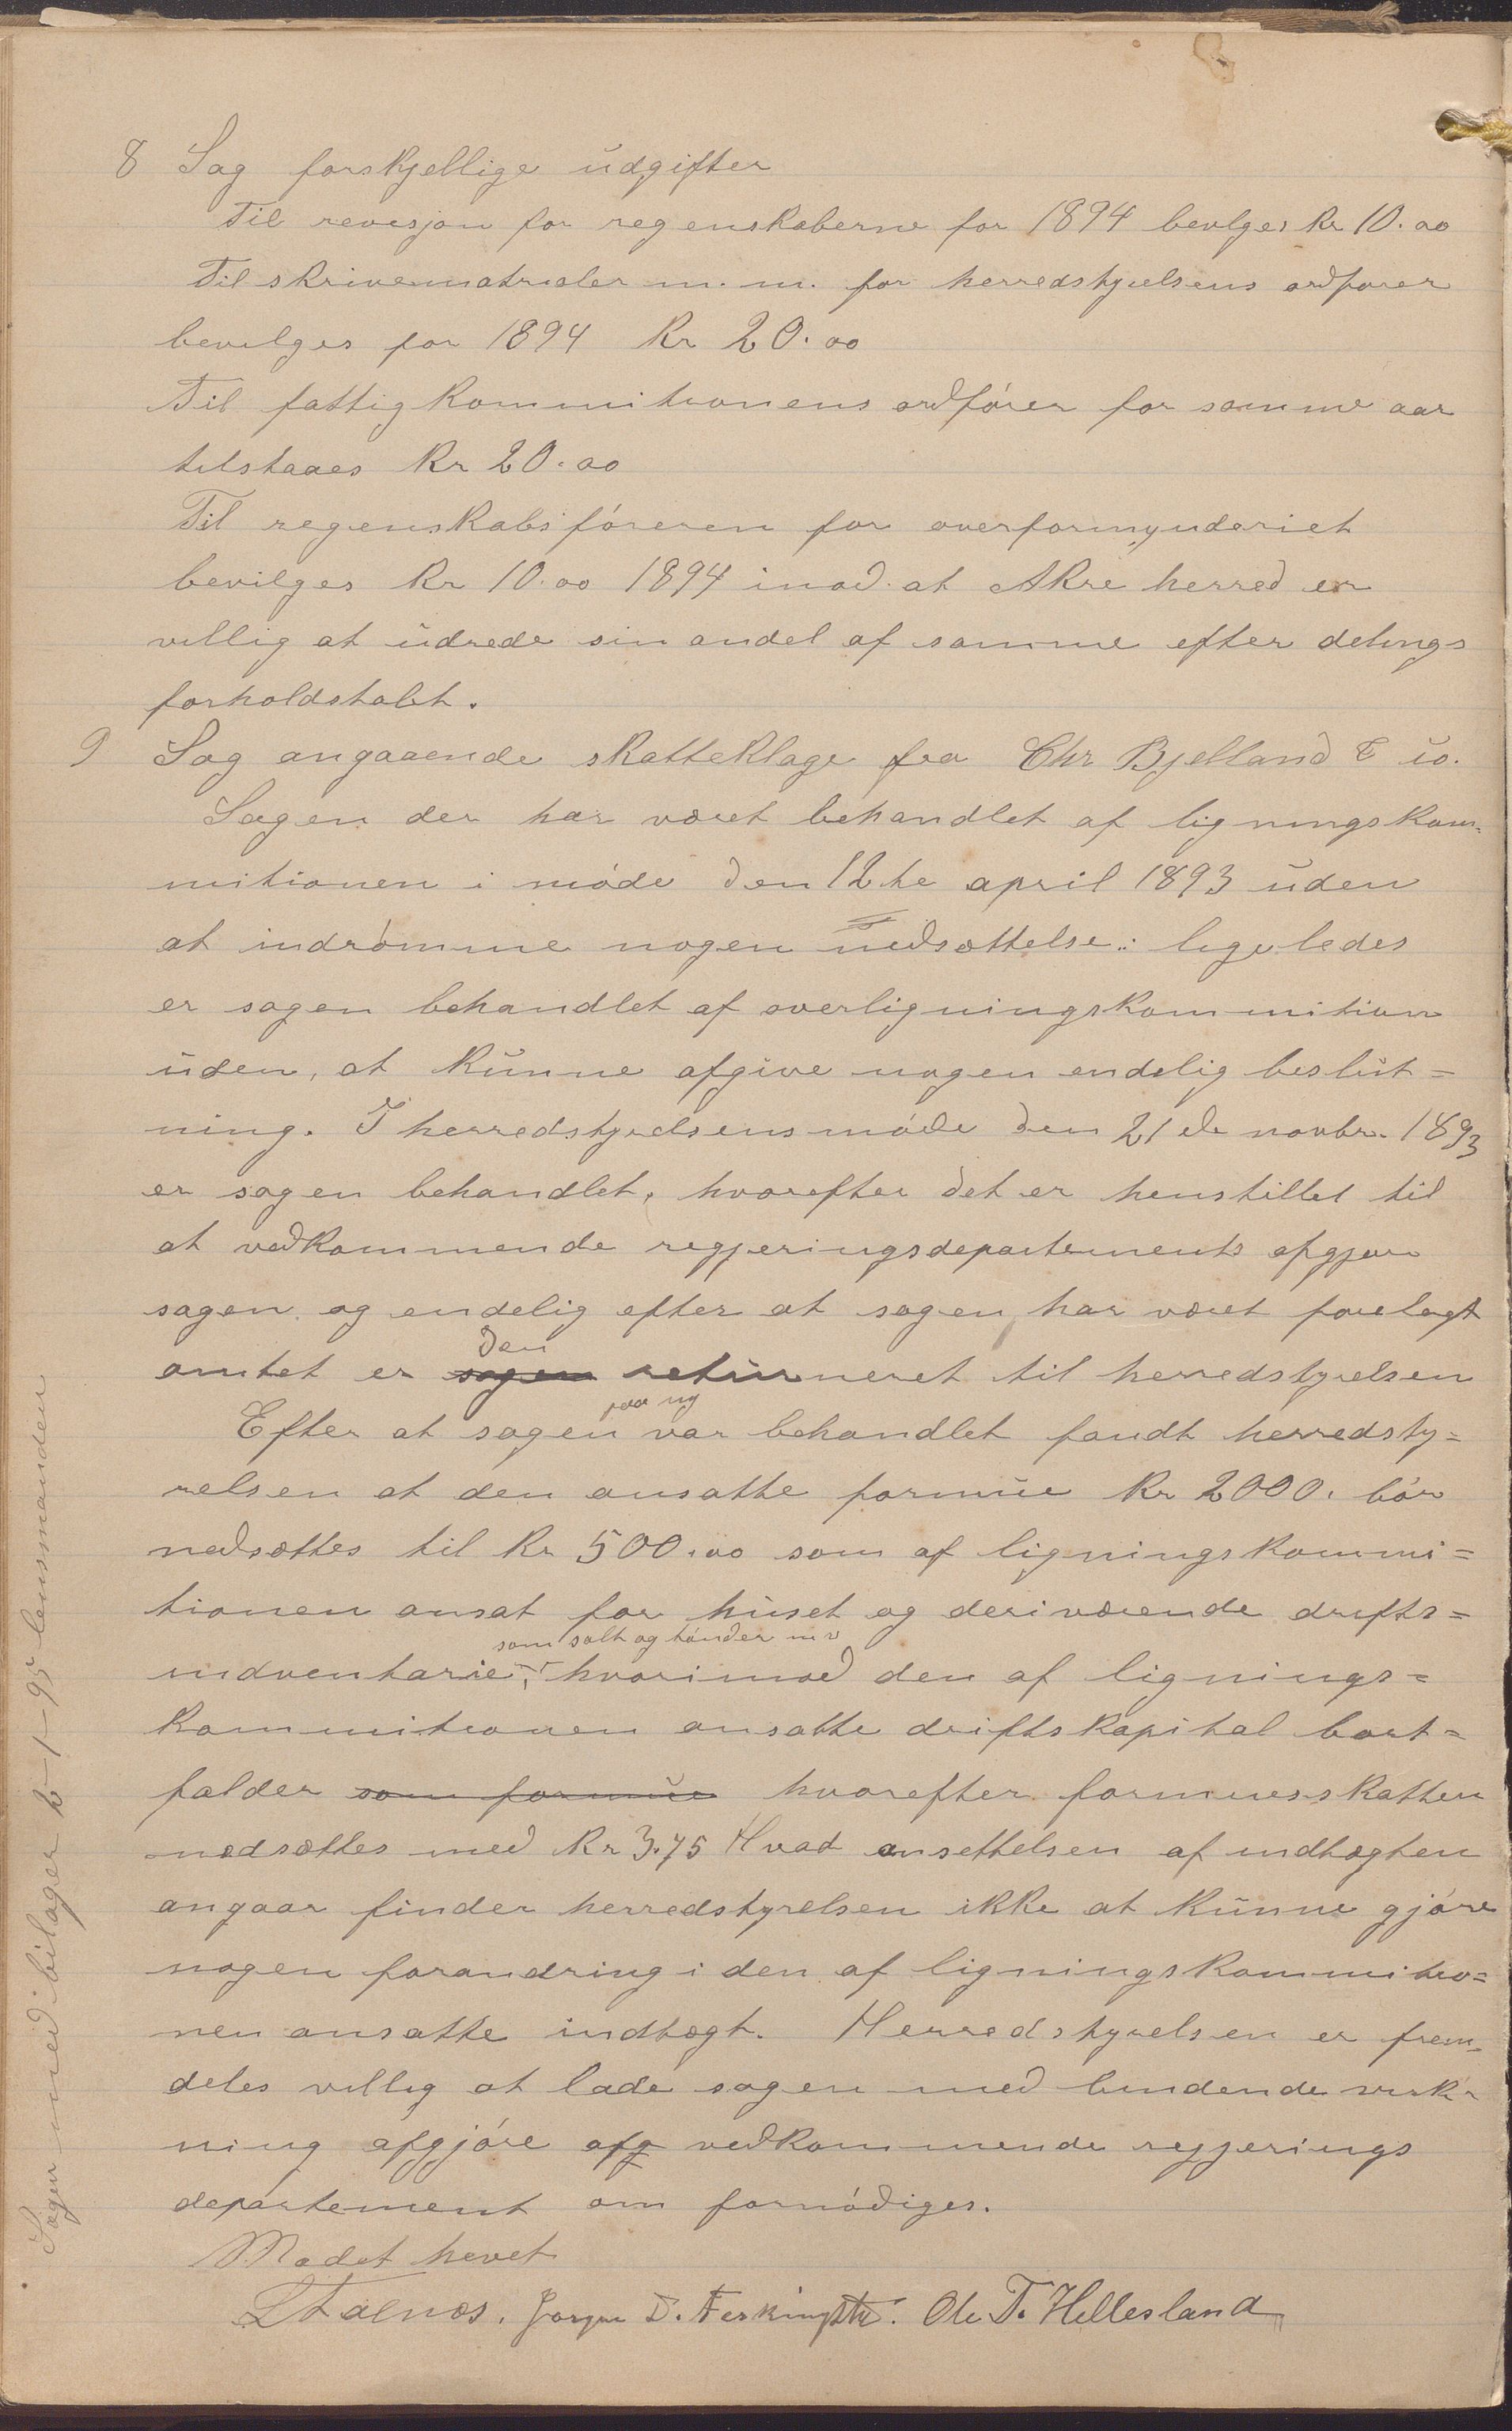 8 Sag forskjellige udgifter
Til revesjon for regenskaberne for 1894 bevlges Kr 10.00
Til skrivematrialer m.m. for herredstyrelsens ordforer
bevilges for 1894 Kr 20.00
Til fattigkommitionens ordfórer for samme aar
tilstaaes Kr 20.00
Til regenskabsfóreren for overformynderiet
bevilges Kr 10.00 1894 imod at Akre herred er
villig at udrede sin andel af samme efter delings
forholdstalet.
9 Sag angaaende skatteklage fra Chr Bjelland & co.
Sagen der har været behandlet af ligningskom-
mitionen i móde den 12te april 1893 uden
at indrómme nogen nedsættelse: ligeledes
er sagen behandlet af overligningskommition
uden, at kunne afgive nogen endelig beslut=
ning. I herredstyrelsens móde den 21de novbr. 1893
er sagen behandlet, hvorefter det er henstillet til
at vedkommende regjeringsdepartements afgjør
sagen og endelig efter at sagen har været forelagt
amtet er sagen den returneret til herredstyrelsen
Efter at sagen paa ny var behandlet fandt herredsty=
relsen at den ansatte formue Kr 2000. bór
nedsættes til Kr 500.00 som af ligningskommi=
tionen ansat for huset og deriværende drifts=
indventarie, som salt og tónder m v hvorimod den af lignings=
kommitionen ansatte driftskapital bort=
falder som formue hvorefter formuesskatten
nedsættes med Kr 3.75 Hvad ansettelsen af indtægten
angaar finder herredstyrelsen ikke at kunne gjóre
nogen forandring i den af ligningskommitio=
nen ansatte indtægt. Herredstyrelsen er frem-
deles villig at lade sagen med bindende virk-
ning afgjóre af vedkommende regjerings
departement om fornódiges.
Mødet hevet
Jorgen D. Ferkingsta. Ole T. Hellesland
Sagen med bilager 2-1-95 lensmanden